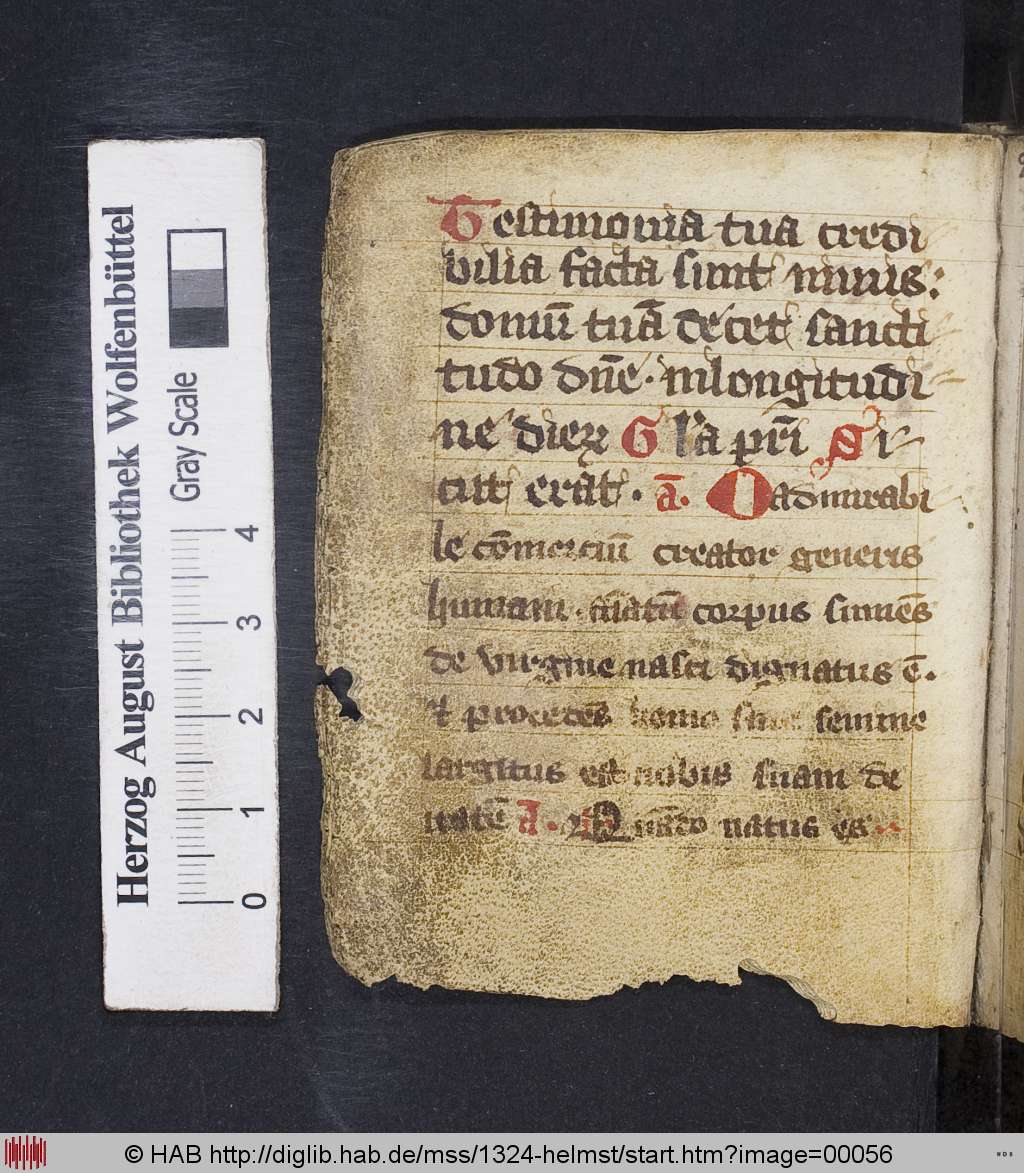 Testimonia tua credi
bilia facta sunt nimis:
domū tuā decet sancti
tudo dn̄e · inlongitudi
ne dieꝝ Gl'a pr̄i Si
cut erat · ā. O admirabi
le cōmerciū creator generis
humani · aīatū corpus sumēs
de virgine nasci dignatus ē.
Et procedēs homo sine semine
largitus est nobis suam de
itatē A. Quādo natus es
Herzog August Bibliothek Wolfenbüttel
Gray Scale
0 1 2 3 4
© HAB http://diglib.hab.de/mss/1324-helmst/start.htm?image=00056